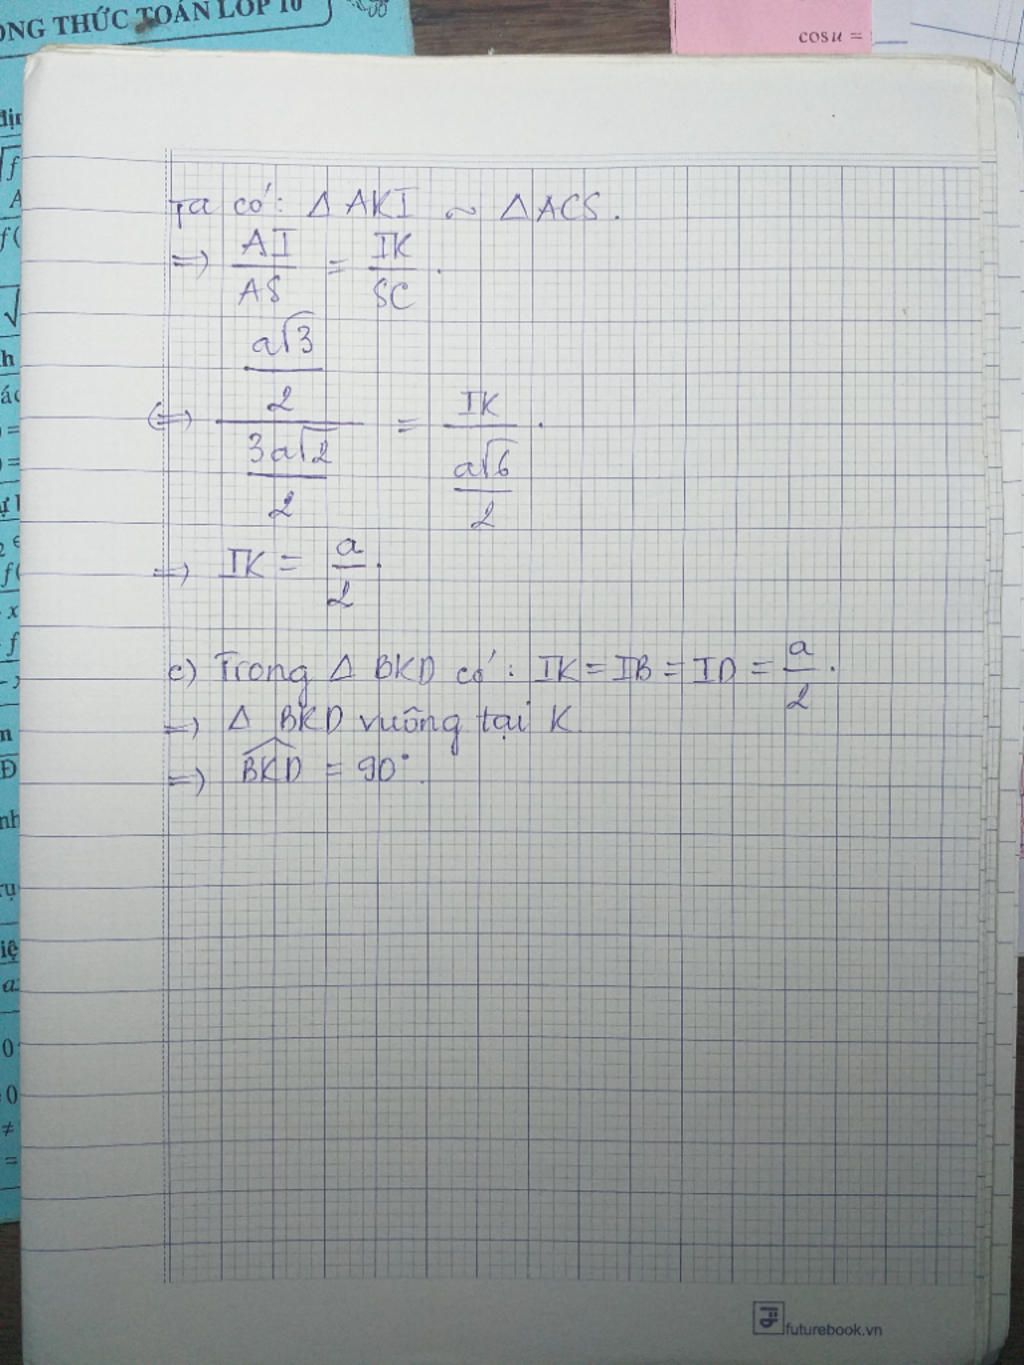 ÔNG THỨC TOÁN LỚP 10
cosu =
Ta có: Δ AKI ~ ΔACS.
=> AI/AS = IK/SC.
<=> (a√3/2)/(3a√2/2) = IK/(a√6/2).
=> IK = a/2.
c) Trong Δ BKD có: IK = IB = ID = a/2.
=> Δ BKD vuông tại K
=> BKD = 90°.
futurebook.vn